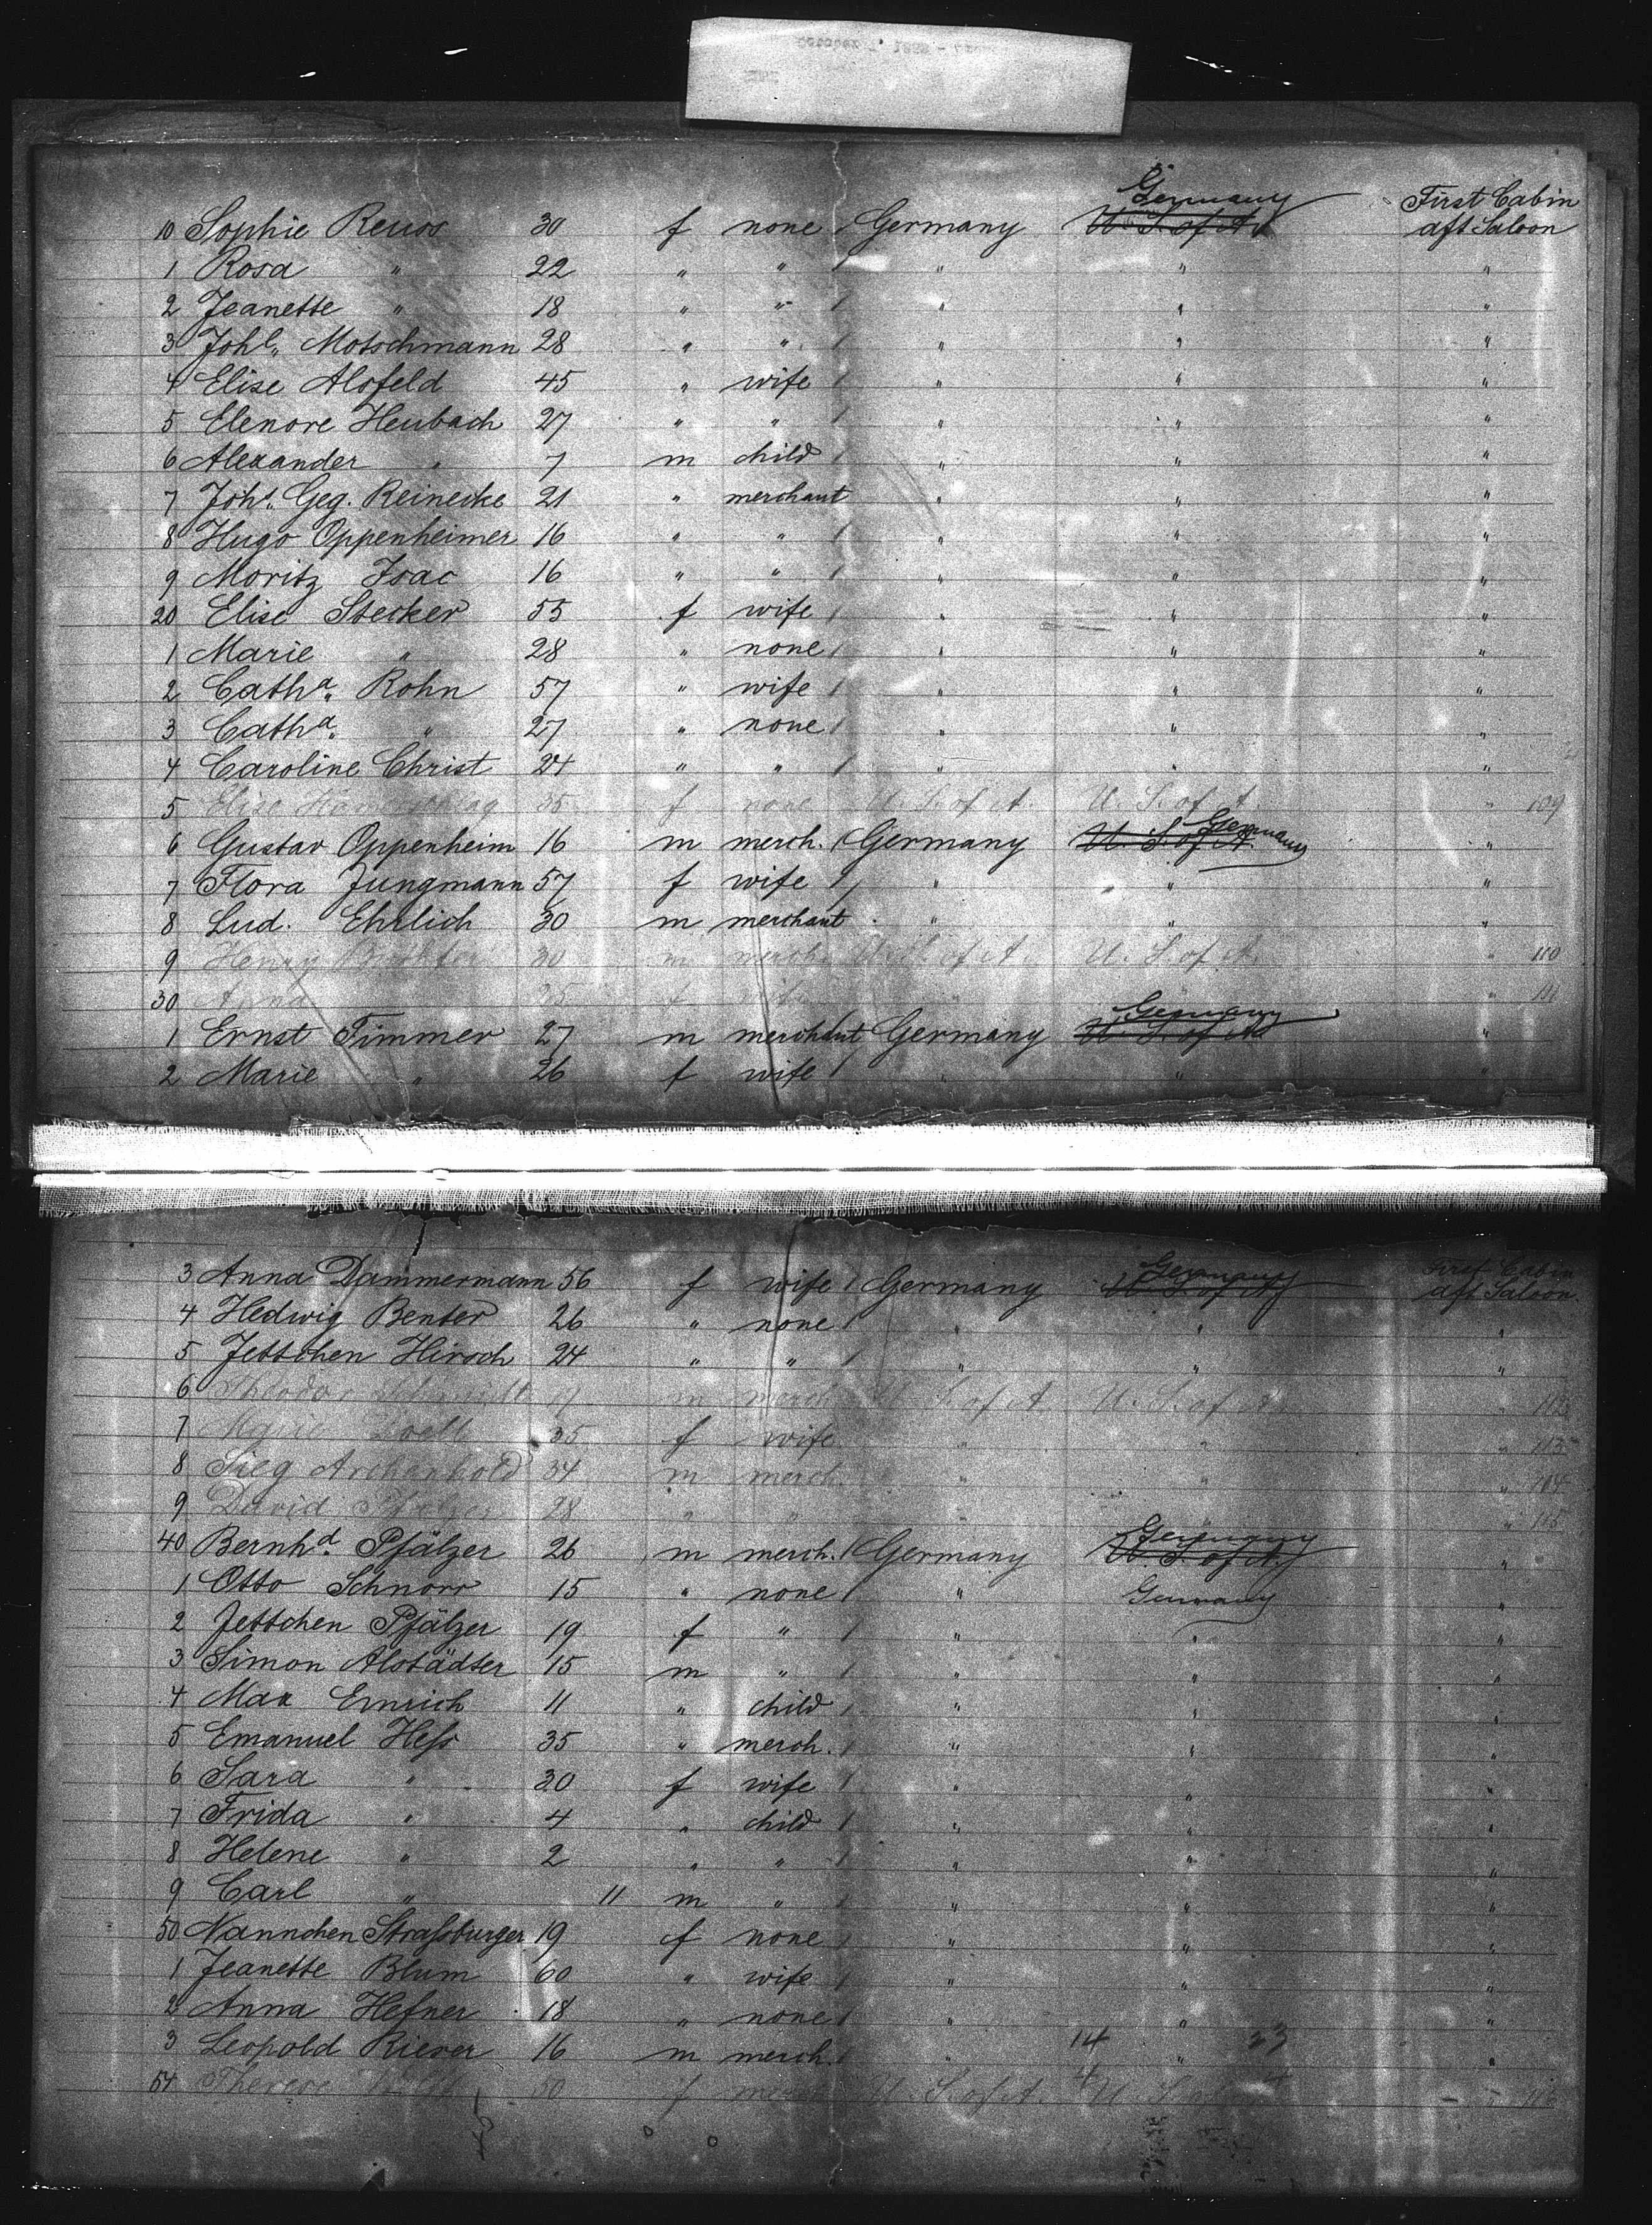 Germany First Cabin
10 Sophie Reuss 30 f none Germany U. S. of A. aft Saloon
1 Rosa " 22 " " " " "
2 Jeanette " 18 " " " " "
3 Joh. Motschmann 28 " " " " "
4 Elise Alsfeld 45 " wife " " "
5 Elenore Heubach 27 " " " " "
6 Alexander " 7 m child " " "
7 Joh. Geg. Reinecke 21 " merchant " " "
8 Hugo Oppenheimer 16 " " " " "
9 Moritz Isac 16 " " " " "
20 Elise Stecker 55 f wife " " "
1 Marie " 28 " none " " "
2 Catha. Rohn 57 " wife " " "
3 Catha. " 27 " none " " "
4 Caroline Christ 24 " " " " "
5 Elise 35 f none U. S. of A. U. S. of A. " 109
Germany
6 Gustav Oppenheim 16 m merch. Germany U. S. of A. "
7 Flora Jungmann 57 f wife " " "
8 Lud. Ehrlich 30 m merchant " " "
9 Henry 30 m merch. U. S. of A. U. S. of A. " 110
30 Anna 25 f wife " 111
Germany
1 Ernst Timmer 27 m merchant Germany U. S. of A. "
2 Marie " 26 f wife " " "
Germany First Cabin
3 Anna Dammermann 56 f wife Germany U. S. of A. aft Saloon
4 Hedwig Benter 26 " none " " "
5 Jettchen Hirsch 24 " " " " "
6 Theodor Schmidt m merch S. of A. U. S. of A.
7 Marie 35 f wife " " " 113
8 Sieg Archenhold 34 m merch. " " " 114
9 David Pfälzer 28 " " " " " 115
Germany
40 Bernhd. Pfälzer 26 m merch. Germany U. S. of A. "
1 Otto Schnorr 15 " none " Germany "
2 Jettchen Pfälzer 19 f " " " "
3 Simon Alstädter 15 m " " " "
4 Max Emrich 11 " child " " "
5 Emanuel Heſs 35 " merch. " " "
6 Sara " 30 f wife " " "
7 Frida " 4 " child " " "
8 Helene " 2 " " " " "
9 Carl " 11 m " " " "
50 Nannchen Straſsburger 19 f none " " "
1 Jeanette Blum 60 " wife " " "
2 Anna Hefner 18 " none " " "
3 Leopold Rieser 16 m merch. " 14 " 33 "
54 Therese 50 f U. S. of A. U. S. of